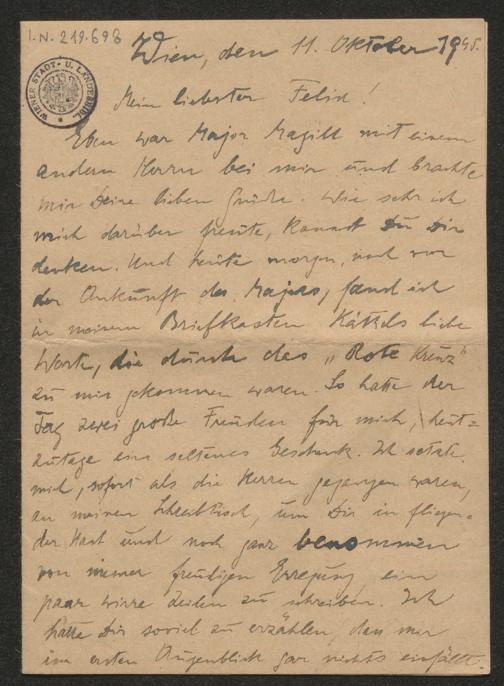 I.N. 219.698
WIENER STADT- U. LANDESBIBL.
Wien, den 11. Oktober 1945.
Mein liebster Felix!
Eben war Major Magill mit einem
andern Herrn bei mir und brachte
mir Deine lieben Grüße. Wie sehr ich
mich darüber freute, kannst Du Dir
denken. Und heute morgen, noch vor
der Ankunft des Majors, fand ich
in meinem Briefkasten Kätzels liebe
Worte, die durch das „Rote Kreuz"
zu mir gekommen waren. So hatte der
Tag zwei große Freuden für mich, heut=
zutage ein seltenes Geschenk. Ich setzte
mich, sofort als die Herren gegangen waren,
an meinen Schreibtisch, um Dir in fliegen=
der Hast und noch ganz benommen
von meiner freudigen Erregung ein
paar wirre Zeilen zu schreiben. Ich
hätte Dir soviel zu erzählen, den mir
im ersten Augenblick gar nichts einfällt.